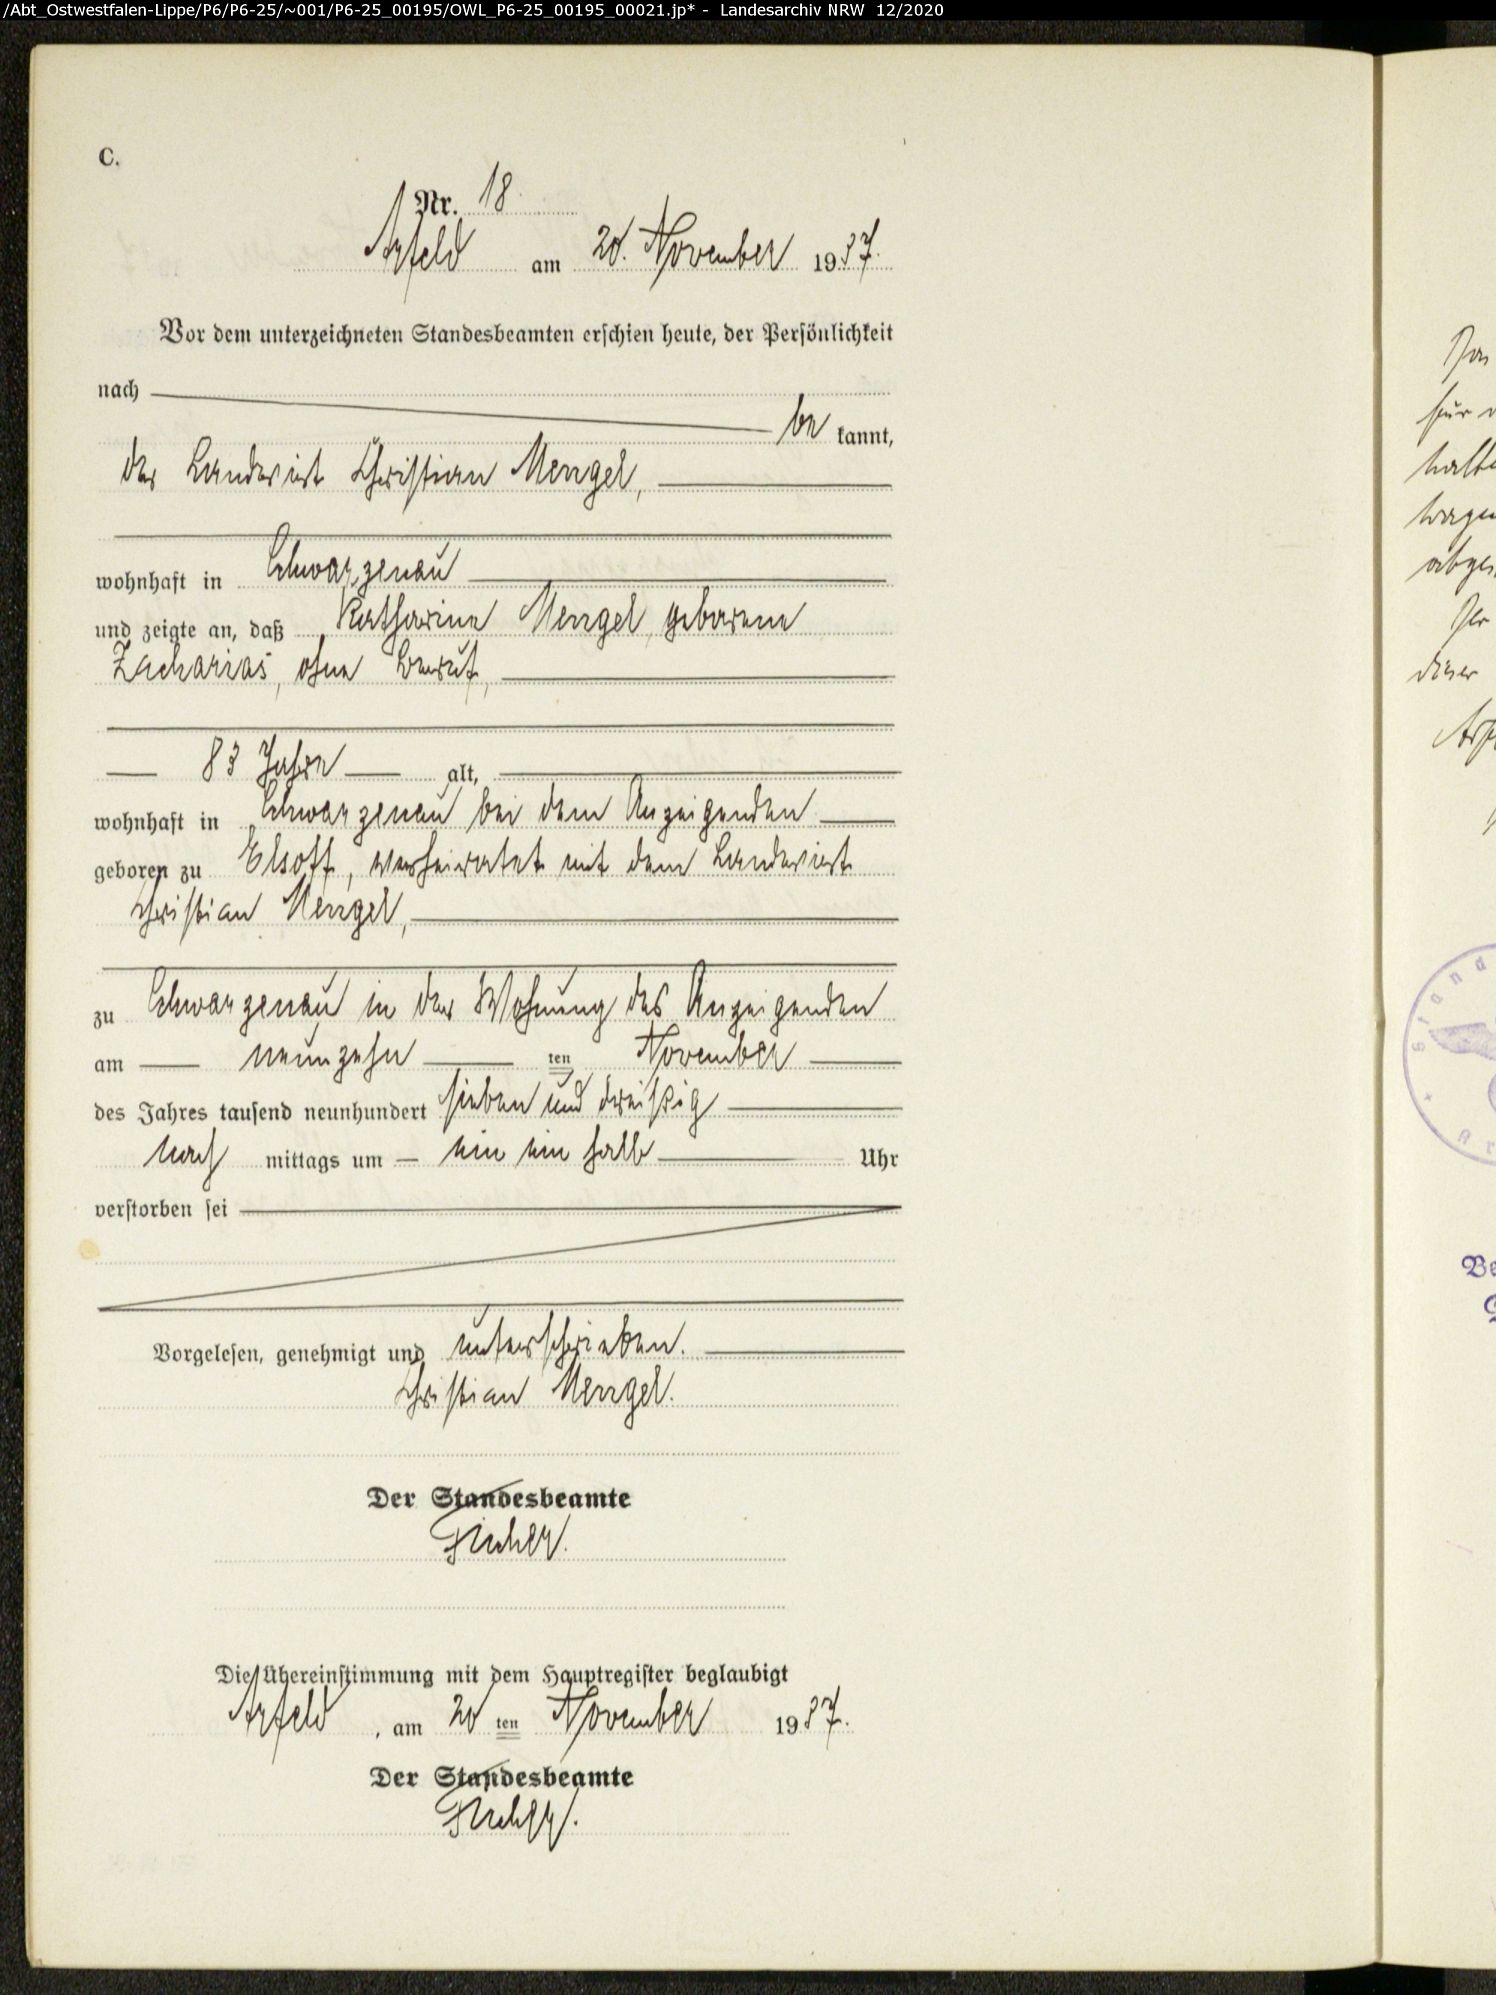 /Abt_Ostwestfalen-Lippe/P6/P6-25/~001/P6-25_00195/OWL_P6-25_00195_00021.jp* - Landesarchiv NRW 12/2020
C.
Nr. 18
Arfeld am 20. November 1937.
Vor dem unterzeichneten Standesbeamten erschien heute, der Persönlichkeit
nach
be kannt,
der Landwirt Christian Mengel,
wohnhaft in Schwarzenau
und zeigte an, daß Katharine Mengel geborene
Zacharias, ohne Beruf,
83 Jahre alt,
wohnhaft in Schwarzenau bei dem Anzeigenden
geboren zu Elsoff, verheiratet mit dem Landwirt
Christian Mengel,
zu Schwarzenau in der Wohnung des Anzeigenden
am neunzehn ten November
des Jahres tausend neunhundert sieben und dreißig
nach mittags um ein ein halb Uhr
verstorben sei
Vorgelesen, genehmigt und unterschrieben.
Christian Mengel.
Der Standesbeamte
Die Übereinstimmung mit dem Hauptregister beglaubigt
Arfeld, am 20 ten November 1937.
Der Standesbeamte
für
dieser